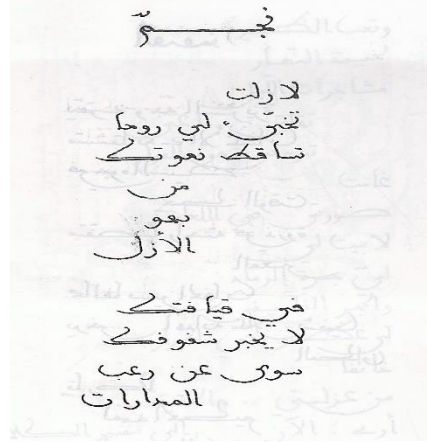 نجـــــــمّ
لا زلت
تخبّىء لي روحا
تساقط نعوتك
من
بهو
الأزل
في قيافتك
لا يخبر شغوفك
سوى عن رعب
المدارات